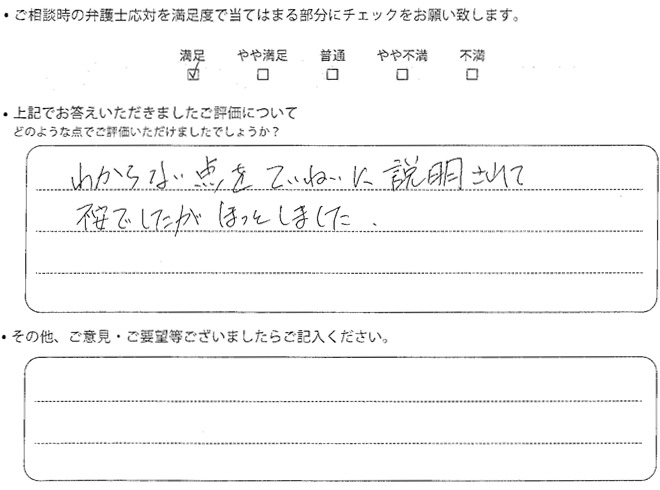 ・ご相談時の弁護士応対を満足度で当てはまる部分にチェックをお願い致します。
満足 やや満足 普通 やや不満 不満
☑ □ □ □ □
・上記でお答えいただきましたご評価について
どのような点でご評価いただけましたでしょうか？
わからない点をていねいに説明されて
不安でしたがほっとしました.
・その他、ご意見・ご要望等ございましたらご記入ください。